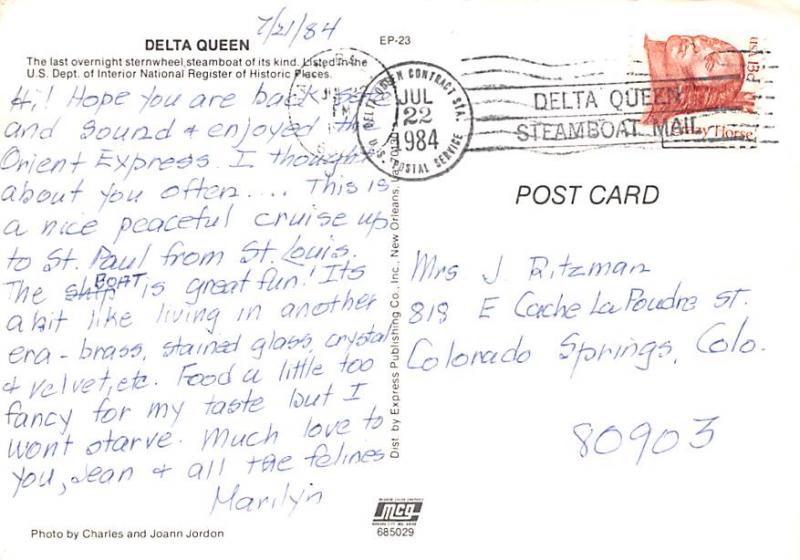 7/21/84
DELTA QUEEN
EP-23
The last overnight sternwheel steamboat of its kind. Listed in the
U.S. Dept. of Interior National Register of Historic Places.
Hi! Hope you are back safe
and sound & enjoyed the
Orient Express. I thought
about you often.... This is
a nice peaceful cruise up
to St. Paul from St. Louis.
The ship BOAT is great fun! Its
a bit like living in another
era - brass, stained glass, crystal
& velvet, etc. Food a little too
fancy for my taste but I
wont starve. Much love to
you, Jean & all the felines
Marilyn
Photo by Charles and Joann Jordon
Dist by Express Publishing Co., Inc., New Orleans, La.
DELTA QUEEN CONTRACT STA.
JUL
22
1984
U.S. POSTAL SERVICE
DELTA QUEEN
STEAMBOAT MAIL
USA 13c
Crazy Horse
POST CARD
Mrs J. Ritzman
818 E Cache La Poudre St.
Colorado Springs, Colo.
80903
mcg
685029